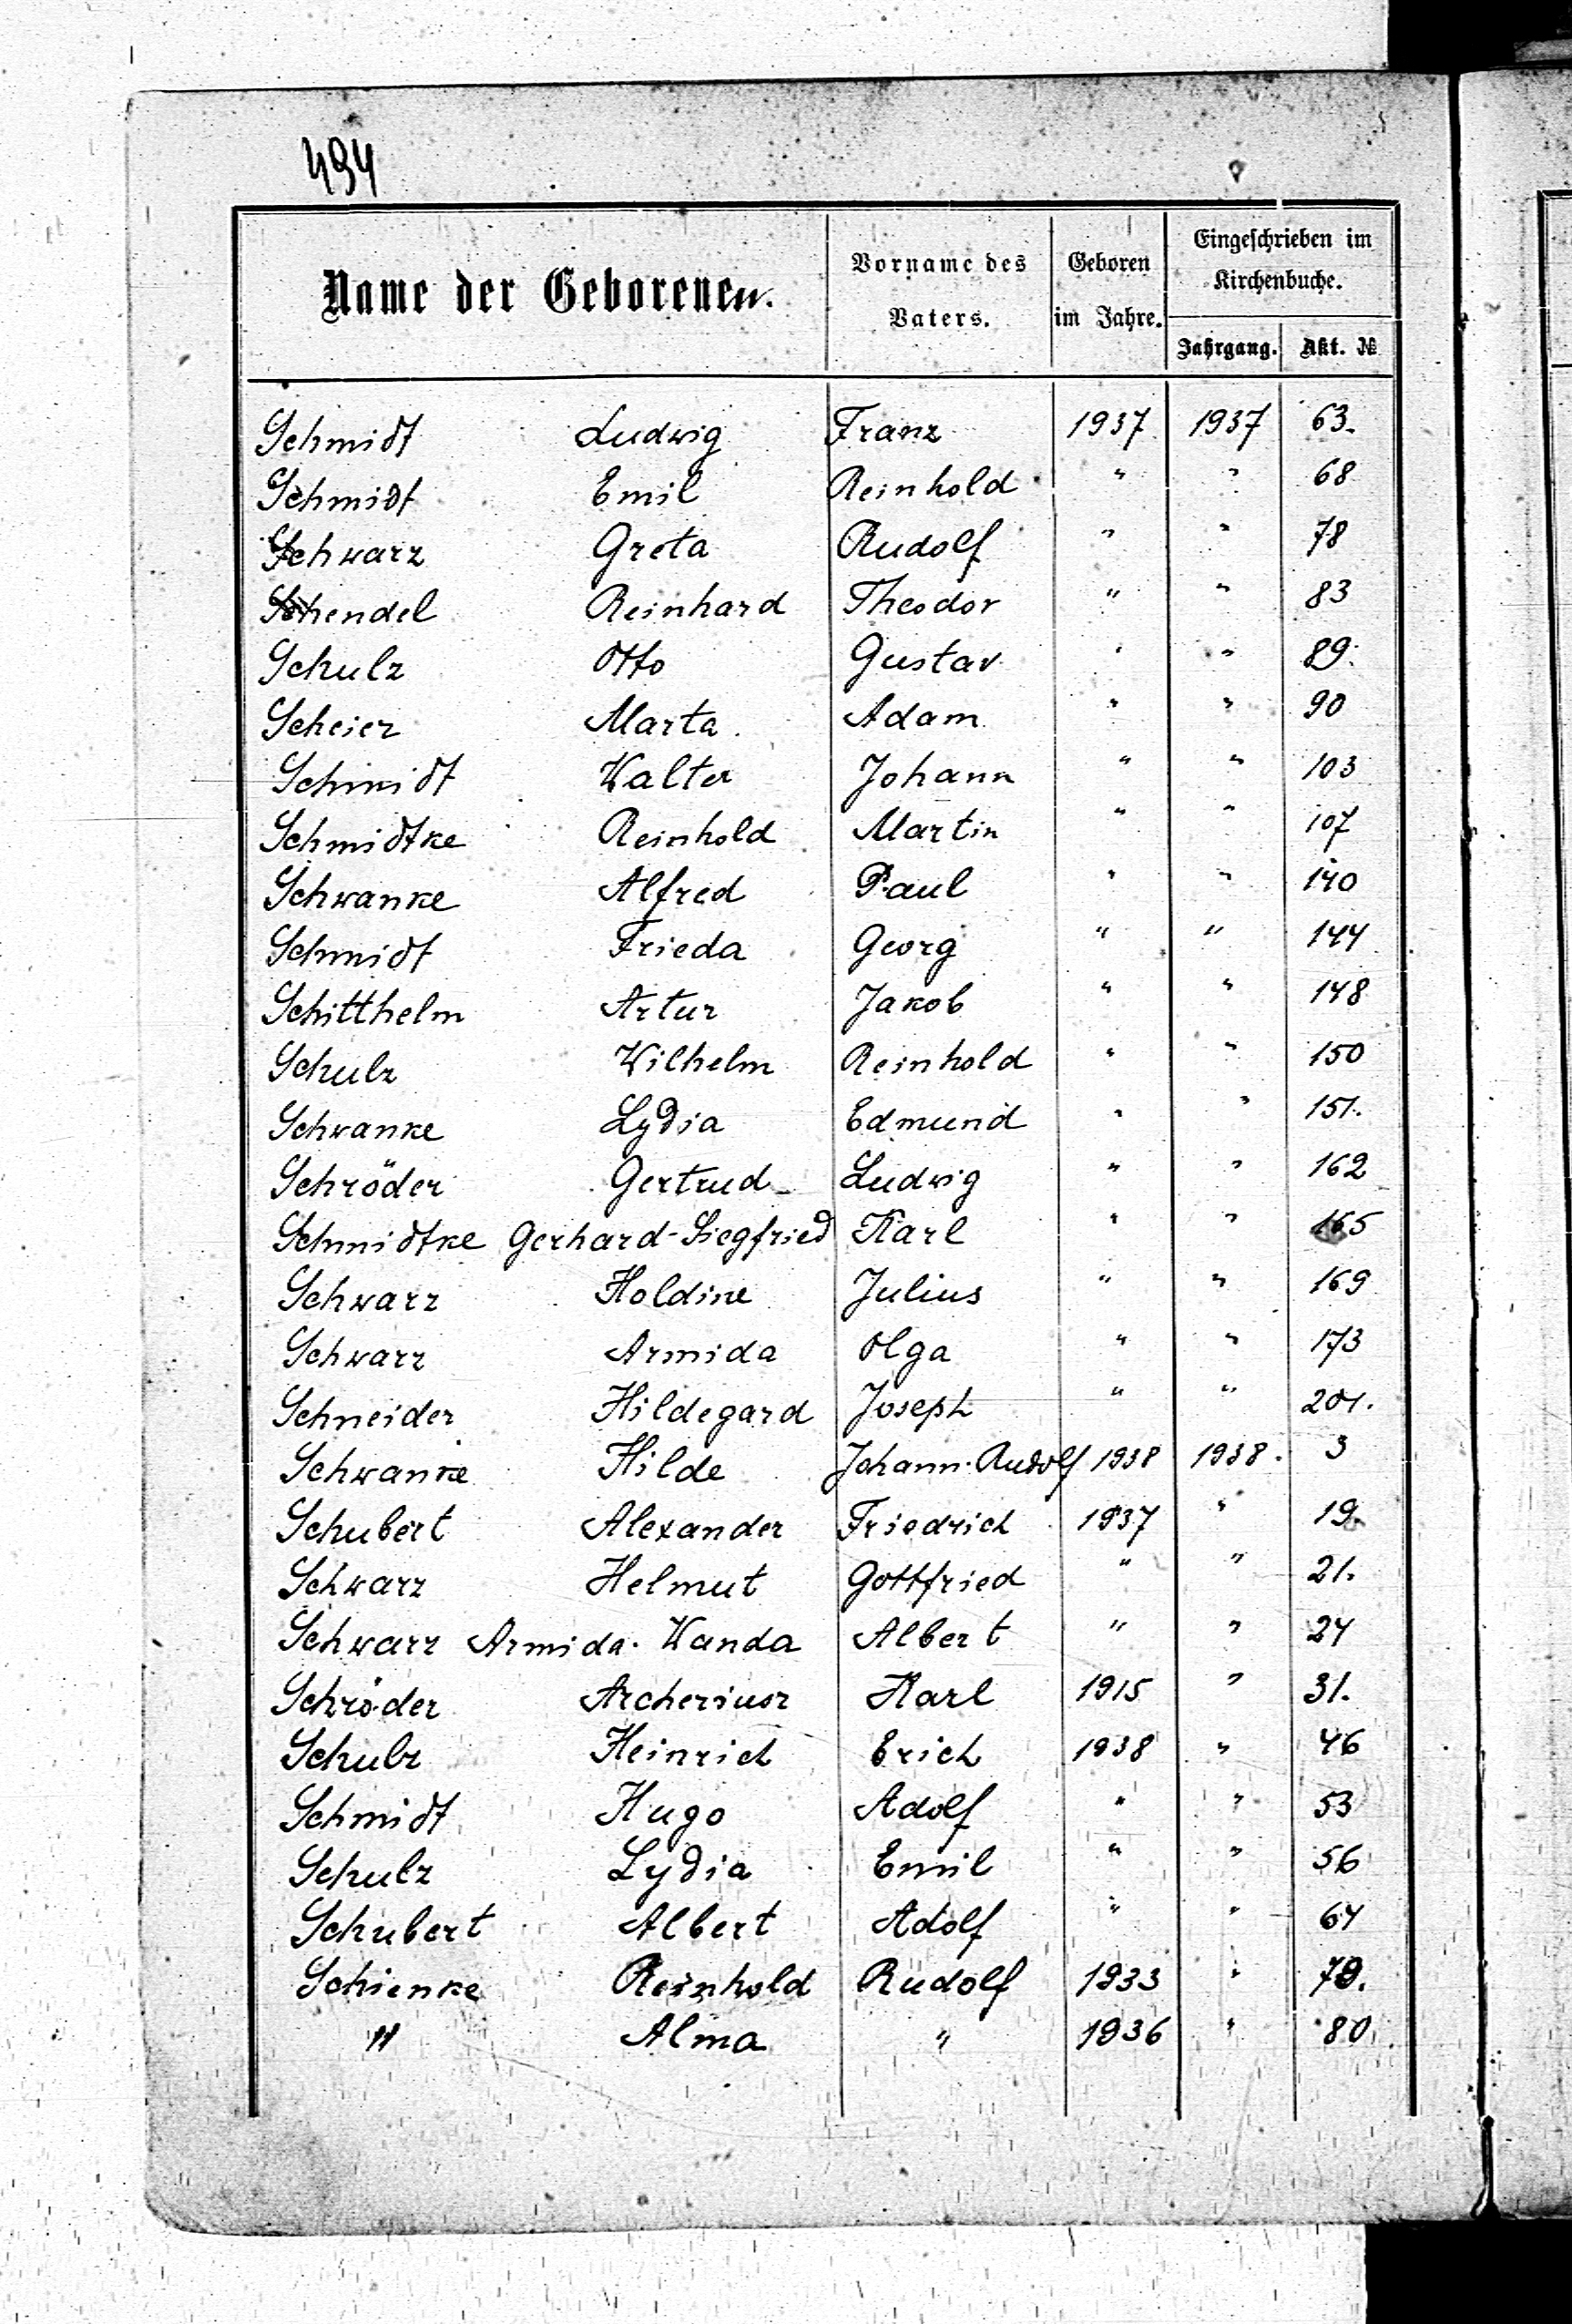 494
Name der Geborenen. Vorname des Vaters. Geboren im Jahre. Eingeschrieben im Kirchenbuche.
Jahrgang. Akt. №
Schmidt Ludwig Franz 1937 1937 63.
Schmidt Emil Reinhold " " 68
Schwarz Greta Rudolf " " 78
Schendel Reinhard Theodor " " 83
Schulz Otto Gustav " " 89.
Scheier Marta Adam " " 90
Schmidt Walter Johann " " 103
Schmidtke Reinhold Martin " " 107
Schwanke Alfred Paul " " 140
Schmidt Frieda Georg " " 144
Schitthelm Artur Jakob " " 148
Schulz Wilhelm Reinhold " " 150
Schwanke Lydia Edmund " " 151.
Schröder Gertrud Ludwig " " 162
Schmidtke Gerhard-Siegfried Karl " " 165
Schwarz Holdine Julius " " 169
Schwarz Armida Olga " " 173
Schneider Hildegard Joseph " " 201.
Schwanke Hilde Johann-Rudolf 1938 1938. 3
Schubert Alexander Friedrich 1937 " 19.
Schwarz Helmut Gottfried " " 21.
Schwarz Armida-Wanda Albert " " 24
Schröder Archeriusz Karl 1915 " 31.
Schulz Heinrich Erich 1938 " 46
Schmidt Hugo Adolf " " 53
Schulz Lydia Emil " " 56
Schubert Albert Adolf " " 64
Schienke Reinhold Rudolf 1933 " 79.
" Alma " 1936 " 80.